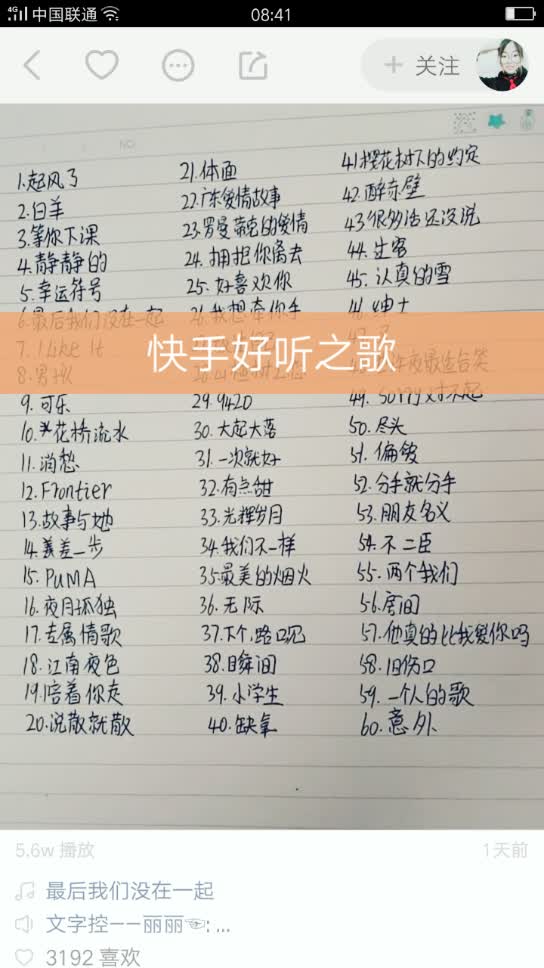 4G 中国联通 08:41
+ 关注
NO
1.起风了
2.白羊
3.等你下课
4.静静的
5.幸运符号
6.最后我们没在一起
7.I Like It
8.男孩
9.可乐
10.花桥流水
11.消愁
12.Frontier
13.故事与她
14.差一步
15.PUMA
16.夜月孤独
17.专属情歌
18.江南夜色
19.陪着你走
20.说散就散
21.体面
22.广东爱情故事
23.罗曼蒂克的爱情
24.拥抱你离去
25.好喜欢你
26.我想牵你手
29.9420
30.大起大落
31.一次就好
32.有点甜
33.光辉岁月
34.我们不一样
35.最美的烟火
36.无际
37.下个路口见
38.目瞬间
39.小学生
40.缺氧
41.樱花树下的约定
42.醉赤壁
43.很多话还没说
44.过客
45.认真的雪
46.绅士
49.Sorry对不起
50.尽头
51.偏爱
52.分手就分手
53.朋友名义
54.不二臣
55.两个我们
56.房间
57.他真的比我爱你吗
58.旧伤口
59.一个人的歌
60.意外
快手好听之歌
5.6w 播放
1天前
最后我们没在一起
文字控——丽丽☜: ...
3192 喜欢